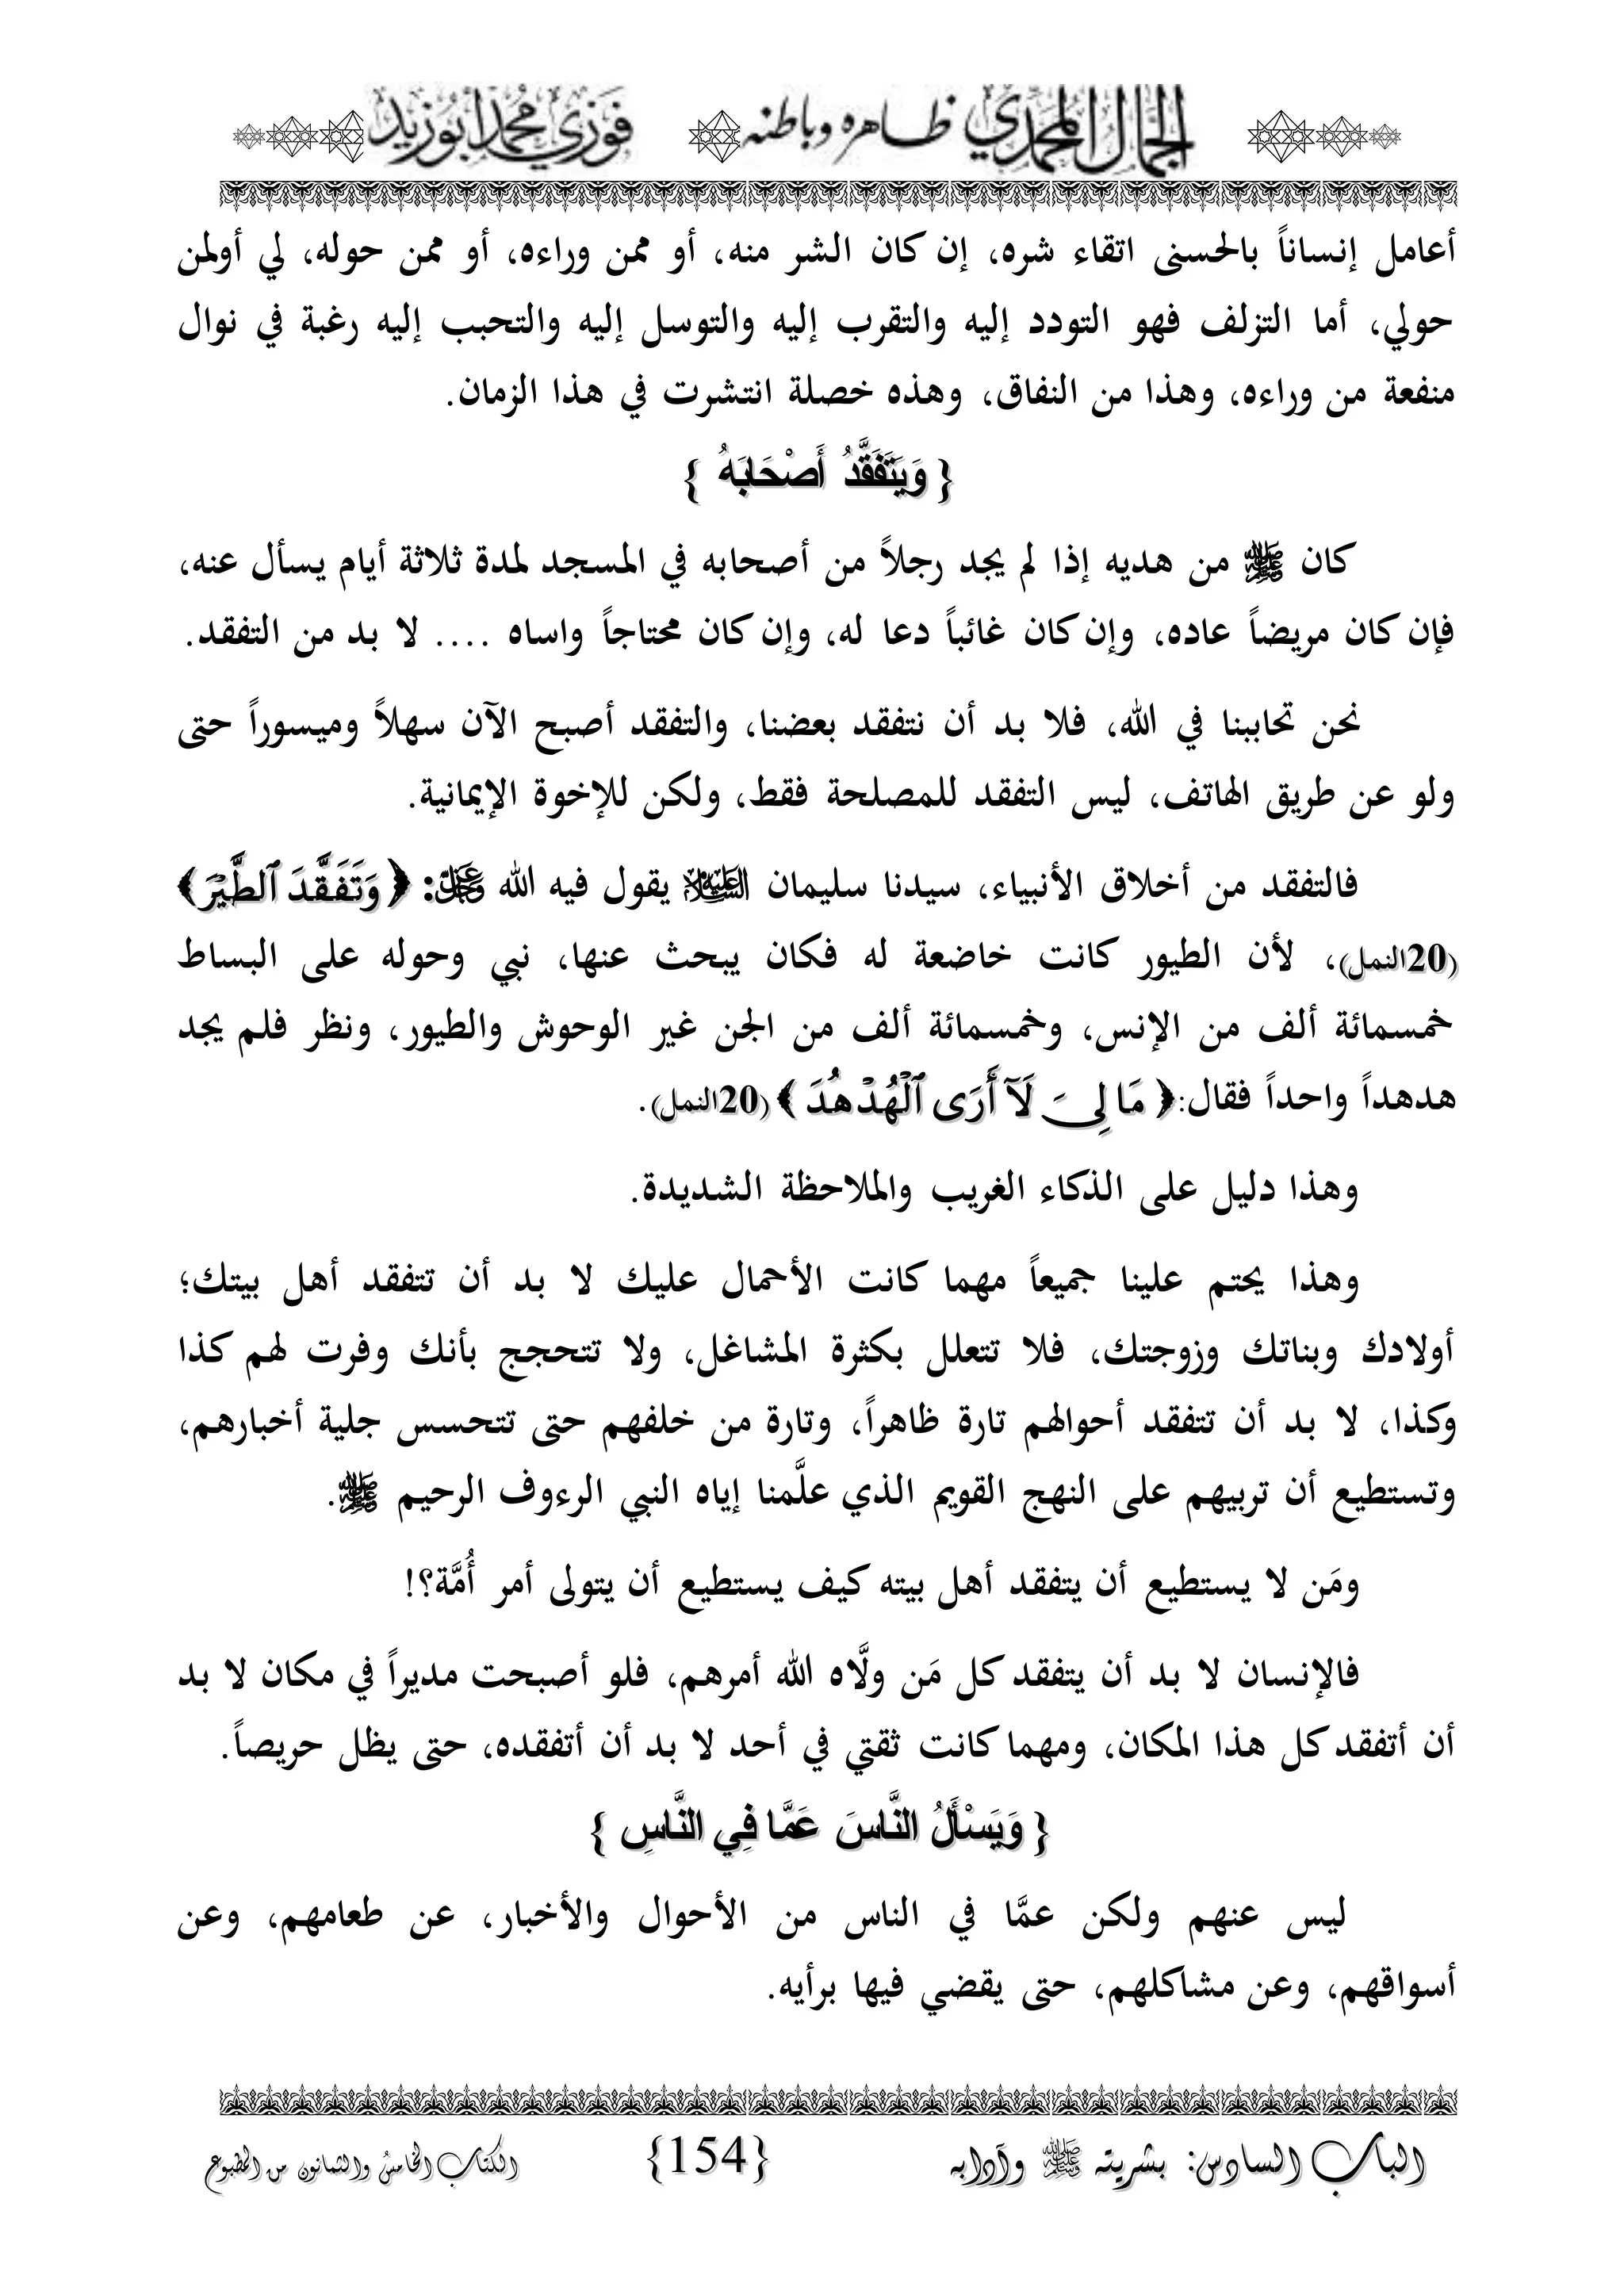 الجمال المحمدي ظاهره وباطنه فوزي محمد أبوزيد
أعامل إنساناً بالحسنى اتقاء شره، إن كان الشر منه، أو ممن وراءه، أو ممن حوله، لي أولمن
حولي، أما التزلف فهو التودد إليه والتقرب إليه والتوسل إليه والتحبب إليه رغبة في نوال
منفعة من وراءه، وهذا من النفاق، وهذه خصلة انتشرت في هذا الزمان.
{ وَيَتَفَقَّدُ أَصْحَابَهُ }
كان ﷺ من هديه إذا لم يجد رجلاً من أصحابه في المسجد لمدة ثلاثة أيام يسأل عنه،
فإن كان مريضاً عاده، وإن كان غائباً دعا له، وإن كان محتاجاً واساه .... لا بد من التفقد.
نحن تحاببنا في الله، فلا بد أن نتفقد بعضنا، والتفقد أصبح الآن سهلاً وميسوراً حتى
ولو عن طريق الهاتف، ليس التفقد للمصلحة فقط، ولكن للإخوة الإيمانية.
فالتفقد من أخلاق الأنبياء، سيدنا سليمان عليه السلام يقول فيه الله عز وجل: ﴿ وَتَفَقَّدَ ٱلطَّيْرَ ﴾
(20النمل)، لأن الطيور كانت خاضعة له فكان يبحث عنها، نبي وحوله على البساط
خمسمائة ألف من الإنس، وخمسمائة ألف من الجن غير الوحوش والطيور، ونظر فلم يجد
هدهداً واحداً فقال: ﴿ مَا لِىَ لَآ أَرَى ٱلْهُدْهُدَ ﴾ (20النمل).
وهذا دليل على الذكاء الغريب والملاحظة الشديدة.
وهذا يحتم علينا جميعاً مهما كانت الأحمال عليك لا بد أن تتفقد أهل بيتك؛
أولادك وبناتك وزوجتك، فلا تتعلل بكثرة المشاغل، ولا تتحجج بأنك وفرت لهم كذا
وكذا، لا بد أن تتفقد أحوالهم تارة ظاهراً، وتارة من خلفهم حتى تتحسس جلية أخبارهم،
وتستطيع أن تربيهم على النهج القويم الذي علَّمنا إياه النبي الرءوف الرحيم ﷺ.
ومَن لا يستطيع أن يتفقد أهل بيته كيف يستطيع أن يتولى أمر أُمَّة؟!
فالإنسان لا بد أن يتفقد كل مَن ولَّاه الله أمرهم، فلو أصبحت مديراً في مكان لا بد
أن أتفقد كل هذا المكان، ومهما كانت ثقتي في أحد لا بد أن أتفقده، حتى يظل حريصاً.
{ وَيَسْأَلُ النَّاسَ عَمَّا فِي النَّاسِ }
ليس عنهم ولكن عمَّا في الناس من الأحوال والأخبار، عن طعامهم، وعن
أسواقهم، وعن مشاكلهم، حتى يقضي فيها برأيه.
الباب السادس: بشريته ﷺ وآدابه {154} الكتاب الخامس والثمانون من المطبوع